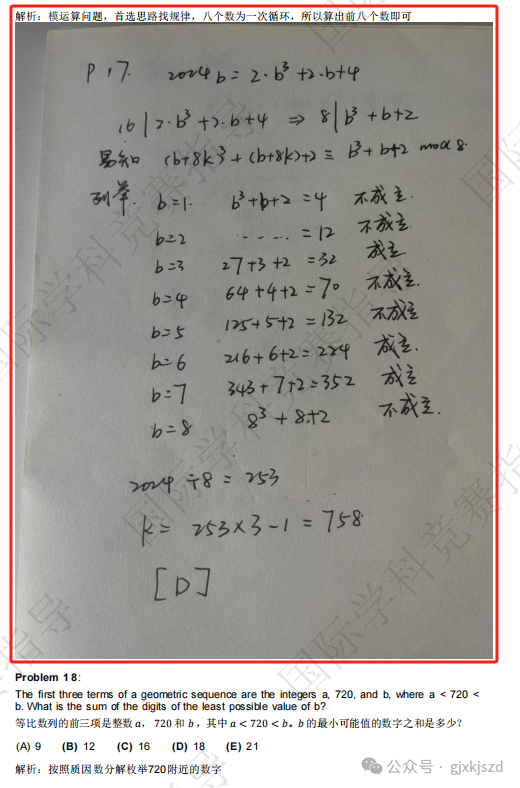 解析：模运算问题，首选思路找规律，八个数为一次循环，所以算出前八个数即可
P 17. 2024 b = 2·b³+2·b+4
16 | 2·b³+2·b+4 ⇒ 8 | b³+b+2
易知 (b+8k)³+(b+8k)+2 ≡ b³+b+2 mod 8.
列举. b=1. b³+b+2=4 不成立.
b=2 ..... =12 不成立.
b=3 27+3+2=32 成立.
b=4 64+4+2=70 不成立.
b=5 125+5+2=132 不成立
b=6 216+6+2=224 成立.
b=7 343+7+2=352 成立
b=8 8³+8+2 不成立.
2024÷8=253
k= 253×3-1=758
[D]
Problem 18:
The first three terms of a geometric sequence are the integers a, 720, and b, where a < 720 <
b. What is the sum of the digits of the least possible value of b?
等比数列的前三项是整数 a， 720 和 b，其中 a < 720 < b。b 的最小可能值的数字之和是多少?
(A) 9 (B) 12 (C) 16 (D) 18 (E) 21
解析：按照质因数分解枚举720附近的数字
公众号 · gjxkjszd
国际学科竞赛指导